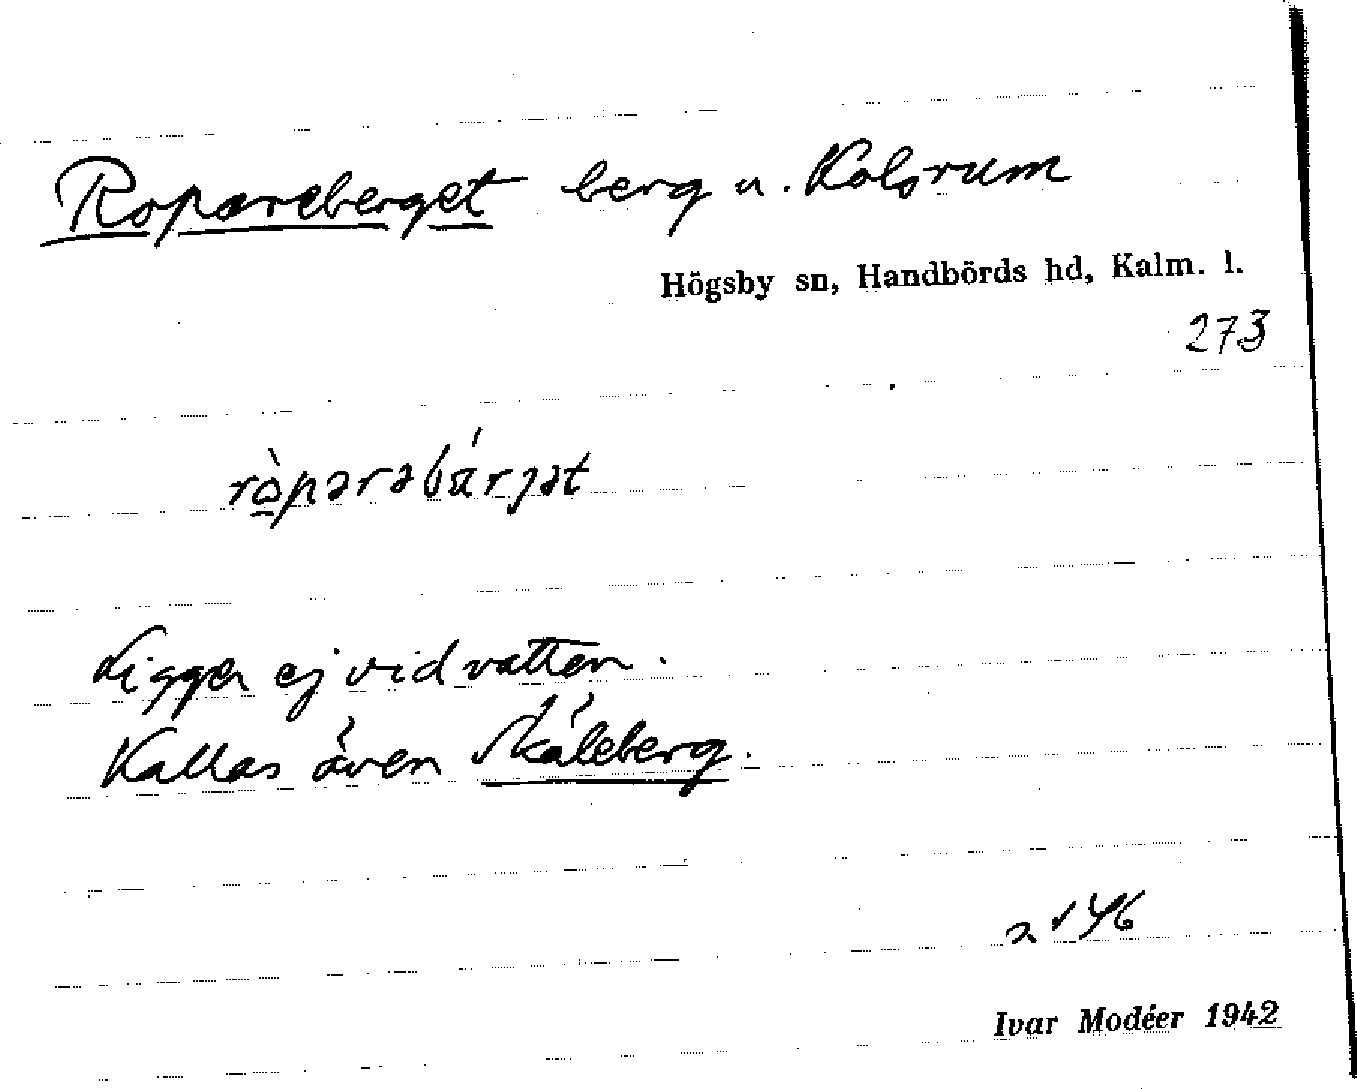 Ropareberget berg u. Kolsrum
Högsby sn, Handbörds hd, Kalm. l.
273
ròparəbárjət
Ligger ej vid vatten.
Kallas även Skáleberg.
146
Ivar Modéer 1942